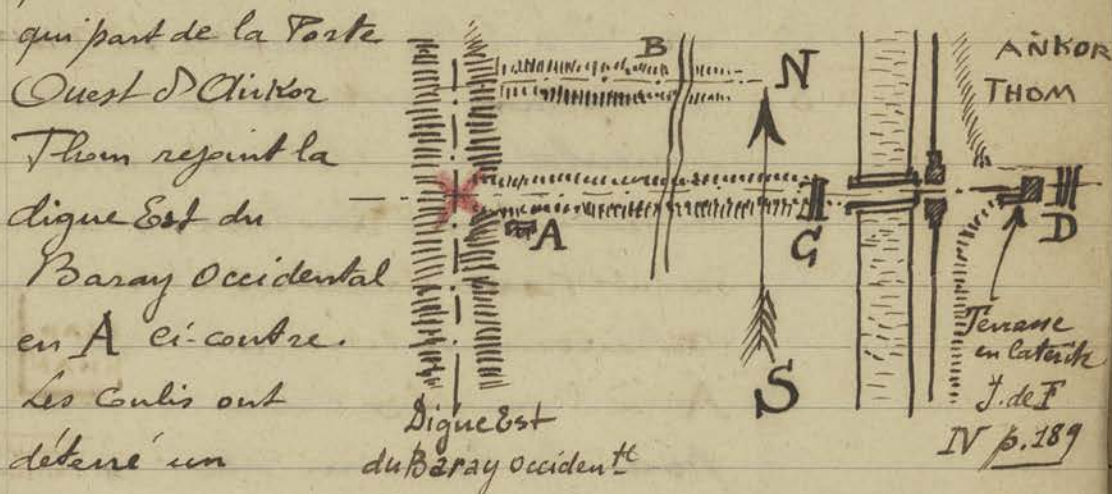 qui part de la Porte
Ouest d'Ankor
Thom rejoint la
digue Est du
Baray Occidental
en A ci-contre.
Les Coulis ont
déterré un
B
N
ANKOR
THOM
A
G
D
S
Terrasse
en laterite
J. de F
IV p. 189
Digue Est
du Baray Occident^tl